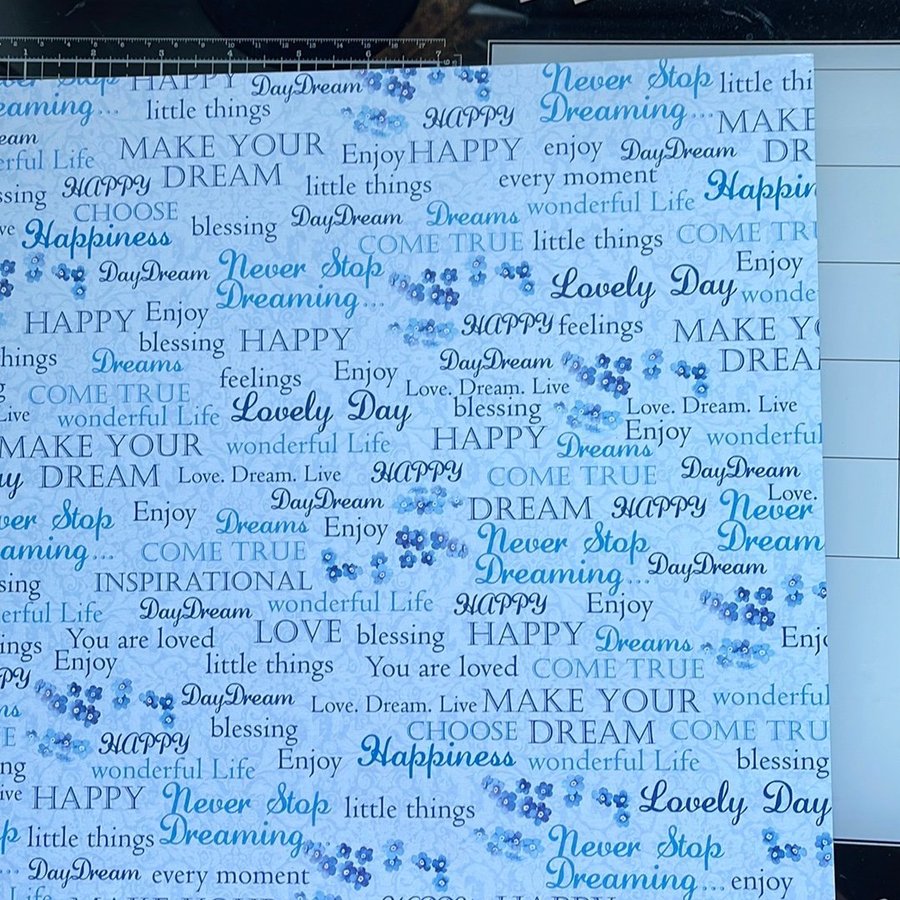 HAPPY DayDream Never Stop little thi
eaming... little things HAPPY Dreaming... MAKE
eam MAKE YOUR Enjoy HAPPY enjoy DayDream DR
erful Life DREAM little things every moment
ssing HAPPY CHOOSE blessing DayDream Dreams wonderful Life Happin
ve Happiness COME TRUE little things COME TRU
DayDream Never Stop Enjoy
Dreaming... Lovely Day wonde
HAPPY Enjoy HAPPY feelings MAKE YO
blessing HAPPY DREA
hings Dreams DayDream
feelings Enjoy Love. Dream. Live
COME TRUE
Live wonderful Life Lovely Day blessing Love. Dream. Live
MAKE YOUR wonderful Life HAPPY Dreams Enjoy wonderful
ay DREAM Love. Dream. Live HAPPY COME TRUE DayDream
DayDream DREAM HAPPY Love.
ver Stop Enjoy Dreams Enjoy Never
aming... COME TRUE Never Stop Dream
sing INSPIRATIONAL Dreaming... DayDream
erful Life DayDream wonderful Life HAPPY Enjoy
ings You are loved LOVE blessing HAPPY Dreams Enjo
PY Enjoy little things You are loved COME TRUE
DayDream Love. Dream. Live MAKE YOUR wonderful
ms blessing CHOOSE DREAM COME TRU
E HAPPY Happiness
ng wonderful Life Enjoy wonderful Life blessing
ive HAPPY Never Stop little things Lovely Day
p little things Dreaming... Never Stop
... DayDream every moment Dreaming... enjoy